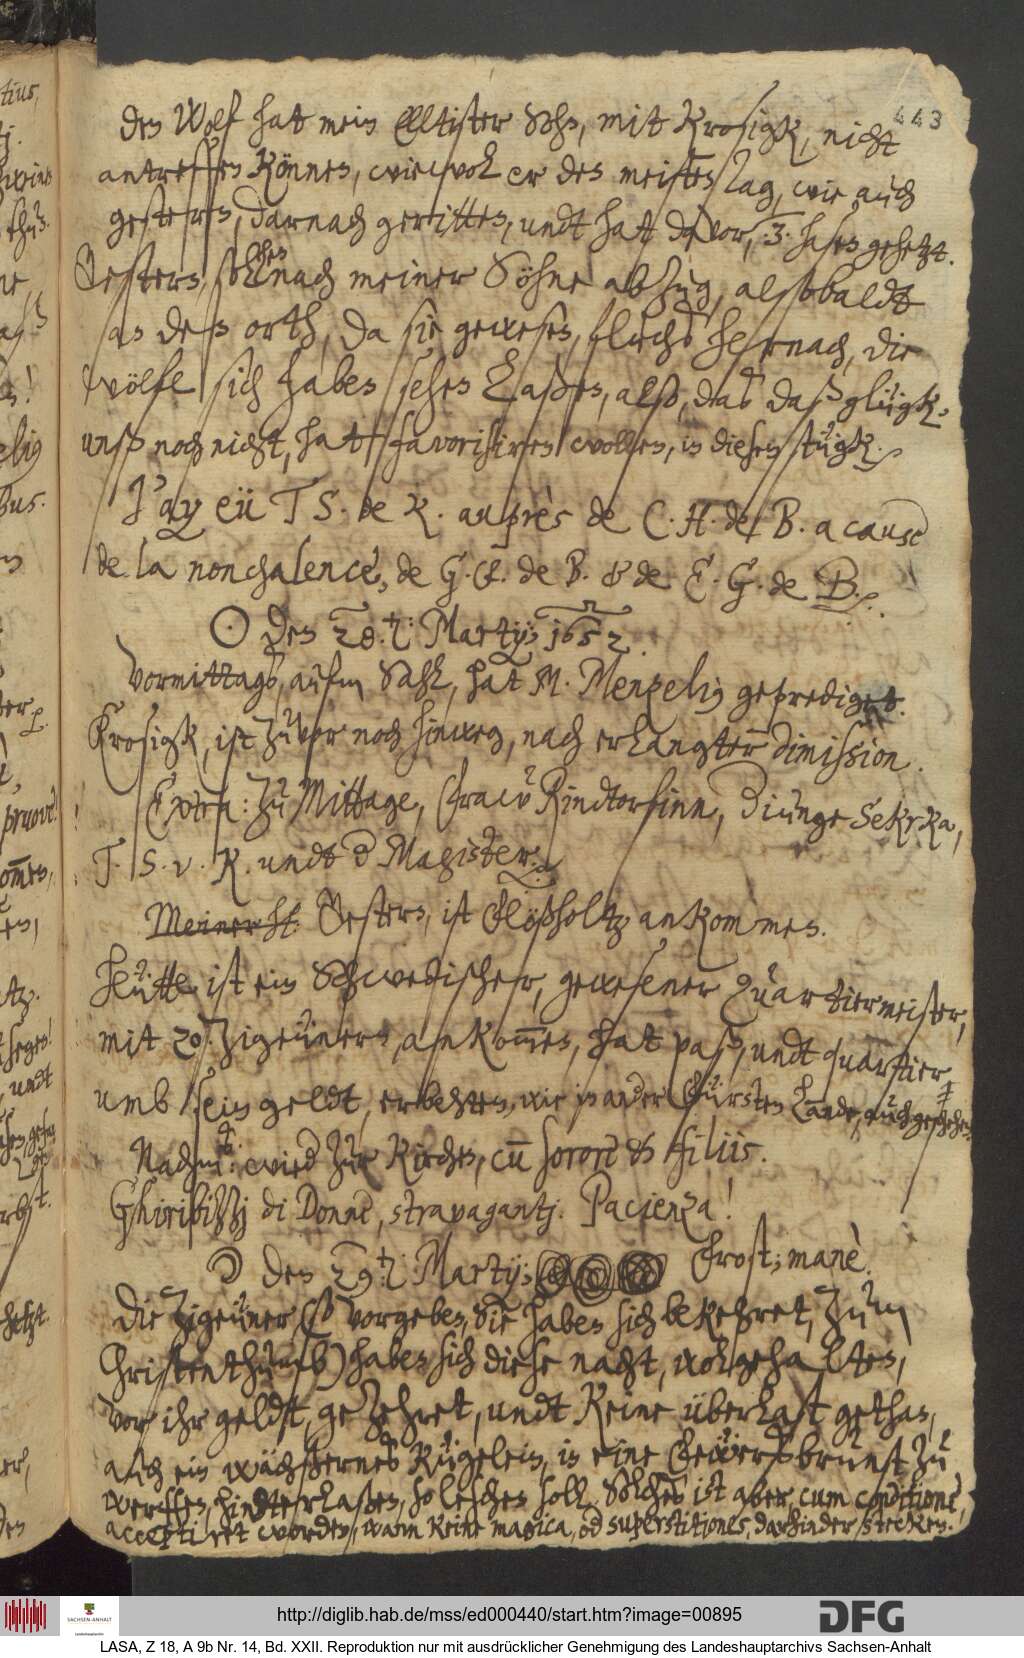 443
den Wolf hat mein Elltister Sohn, mit Krosigk, nicht
antreffen können, wiewol er den meisten tag, wie auch
gestern, darnach geritten, undt hatt davor, 3. hasen gehetzt.
Gestern, sollen nach meiner Söhne abzug, alsobaldt
an dem orth, da sie gewesen, flugs hernach, die
wölfe sich haben sehen laßen, also, das daß glügk,
unß noch nicht, hatt favorisiren wollen, in diesem stügk.
J'ay eü T. S. de K. auprès de C. H. de B. a cause
de la nonchalence, de G. E. de B. & de E. G. de B.
☉ den 28. t: Martij; 1652.
Vormittags, aufm Sahl, hat M. Menzelius geprediget.
Krosigk, ist zuvor noch hinweg, nach erlangter dimission.
Extra: zu Mittage, Fraw Rindtorfinn, die iunge Sekrka,
T. S. v. K. undt der Magister.
Gestern, ist Flößholtz ankommen.
Heütte ist ein Schwedischer, gewesener Quartiermeister,
mit 20. Zigeünern, ankommen, hat paß, undt quartier
umb sein geldt, erbehten, wie in ander Fürsten Lande, auch geschehen.
Nachm: wied zur Kirchen, cum sorore et filiis.
Ghiribizzj di Donne, stravagantj. Pacienza!
☽ den 29. t: Martij; Frost; manè.
Die Zigeüner (so vorgeben, Sie haben sich bekehret, zum
Christenthumb) haben sich diese nacht, wol gehalten,
vor ihr geldt, gezehret, undt keine überlast gethan,
auch ein wächsernes kügelein, in eine Fewersbrunst zu
werffen, hindterlaßen, so leschen soll. Solches ist aber, cum conditione,
acceptiret worden, wann keine magica, od superstitiones, darhinder stecken.
http://diglib.hab.de/mss/ed000440/start.htm?image=00895
SACHSEN-ANHALT
DFG
LASA, Z 18, A 9b Nr. 14, Bd. XXII. Reproduktion nur mit ausdrücklicher Genehmigung des Landeshauptarchivs Sachsen-Anhalt